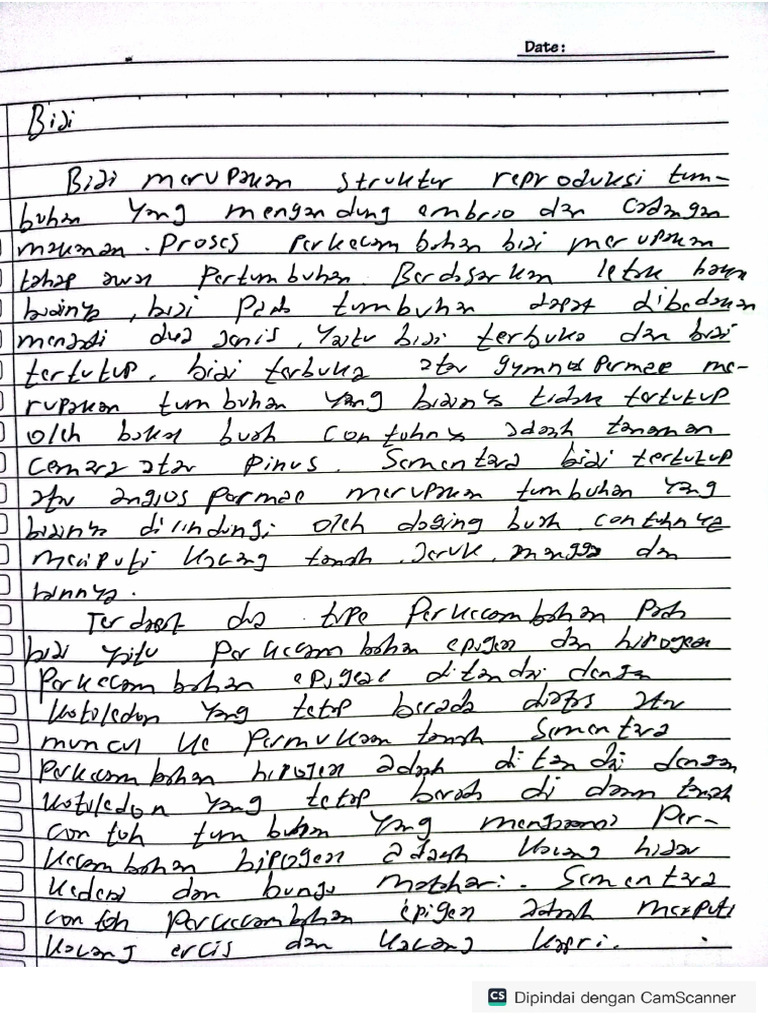 Date:
Biji
Biji merupakan struktur reproduksi tum-
buhan yang mengandung embrio dan cadangan
makanan. Proses perkecambahan biji merupakan
tahap awal pertumbuhan. Berdasarkan letak bakal
bijinya, biji pada tumbuhan dapat dibedakan
menjadi dua jenis, yaitu biji terbuka dan biji
tertutup. biji terbuka atau gymnospermae me-
rupakan tumbuhan yang bijinya tidak tertutup
oleh bakal buah contohnya adalah tanaman
cemara atau pinus. Sementara biji tertutup
atau angiospermae merupakan tumbuhan yang
bijinya dilindungi oleh daging buah. contohnya
meliputi kacang tanah, jeruk, mangga dan
lainnya.
Terdapat dua type perkecambahan pada
biji yaitu perkecambahan epigeal dan hipogeal
perkecambahan epigeal ditandai dengan
kotiledon yang tetap berada diatas atau
muncul ke permukaan tanah sementara
perkecambahan hipogeal adalah ditandai dengan
kotiledon yang tetap berada di dalam tanah
contoh tumbuhan yang mengalami per-
kecambahan hipogeal adalah kacang hijau
kedelai dan bunga matahari. Sementara
contoh perkecambahan epigeal adalah meliputi
kacang ercis dan kacang kapri.
CS Dipindai dengan CamScanner